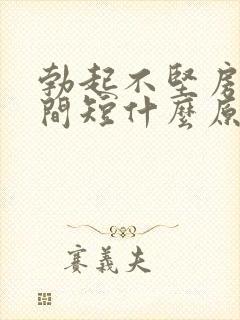 勃起不堅房
間短什麼原
賽義夫